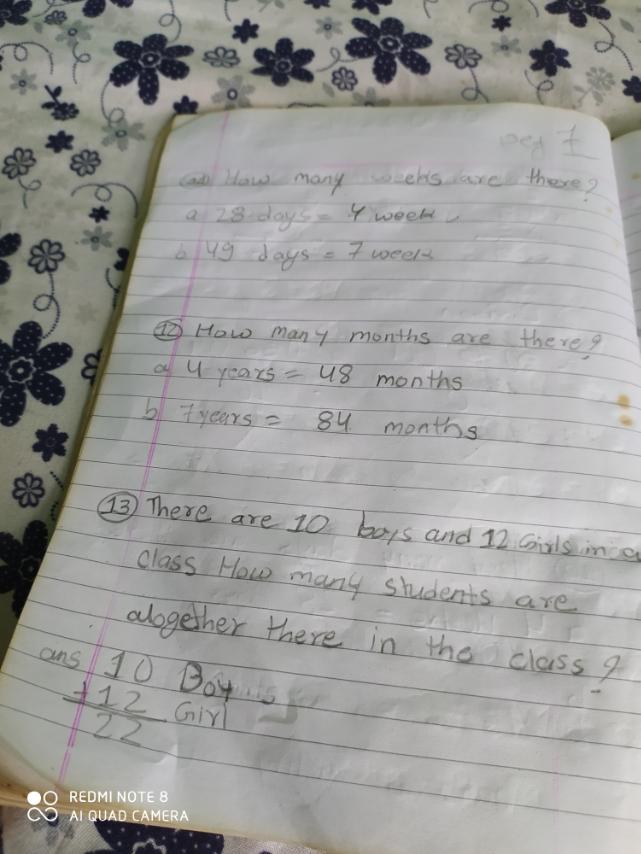 How many weeks are there?
a 28 days = 4 week
b 49 days = 7 week
12 How many months are there?
a 4 years = 48 months
b 7 years = 84 months
13 There are 10 boys and 12 Girls in a
class How many students are
altogether there in the class?
ans 10 Boy
+12 Girl
22
REDMI NOTE 8
AI QUAD CAMERA